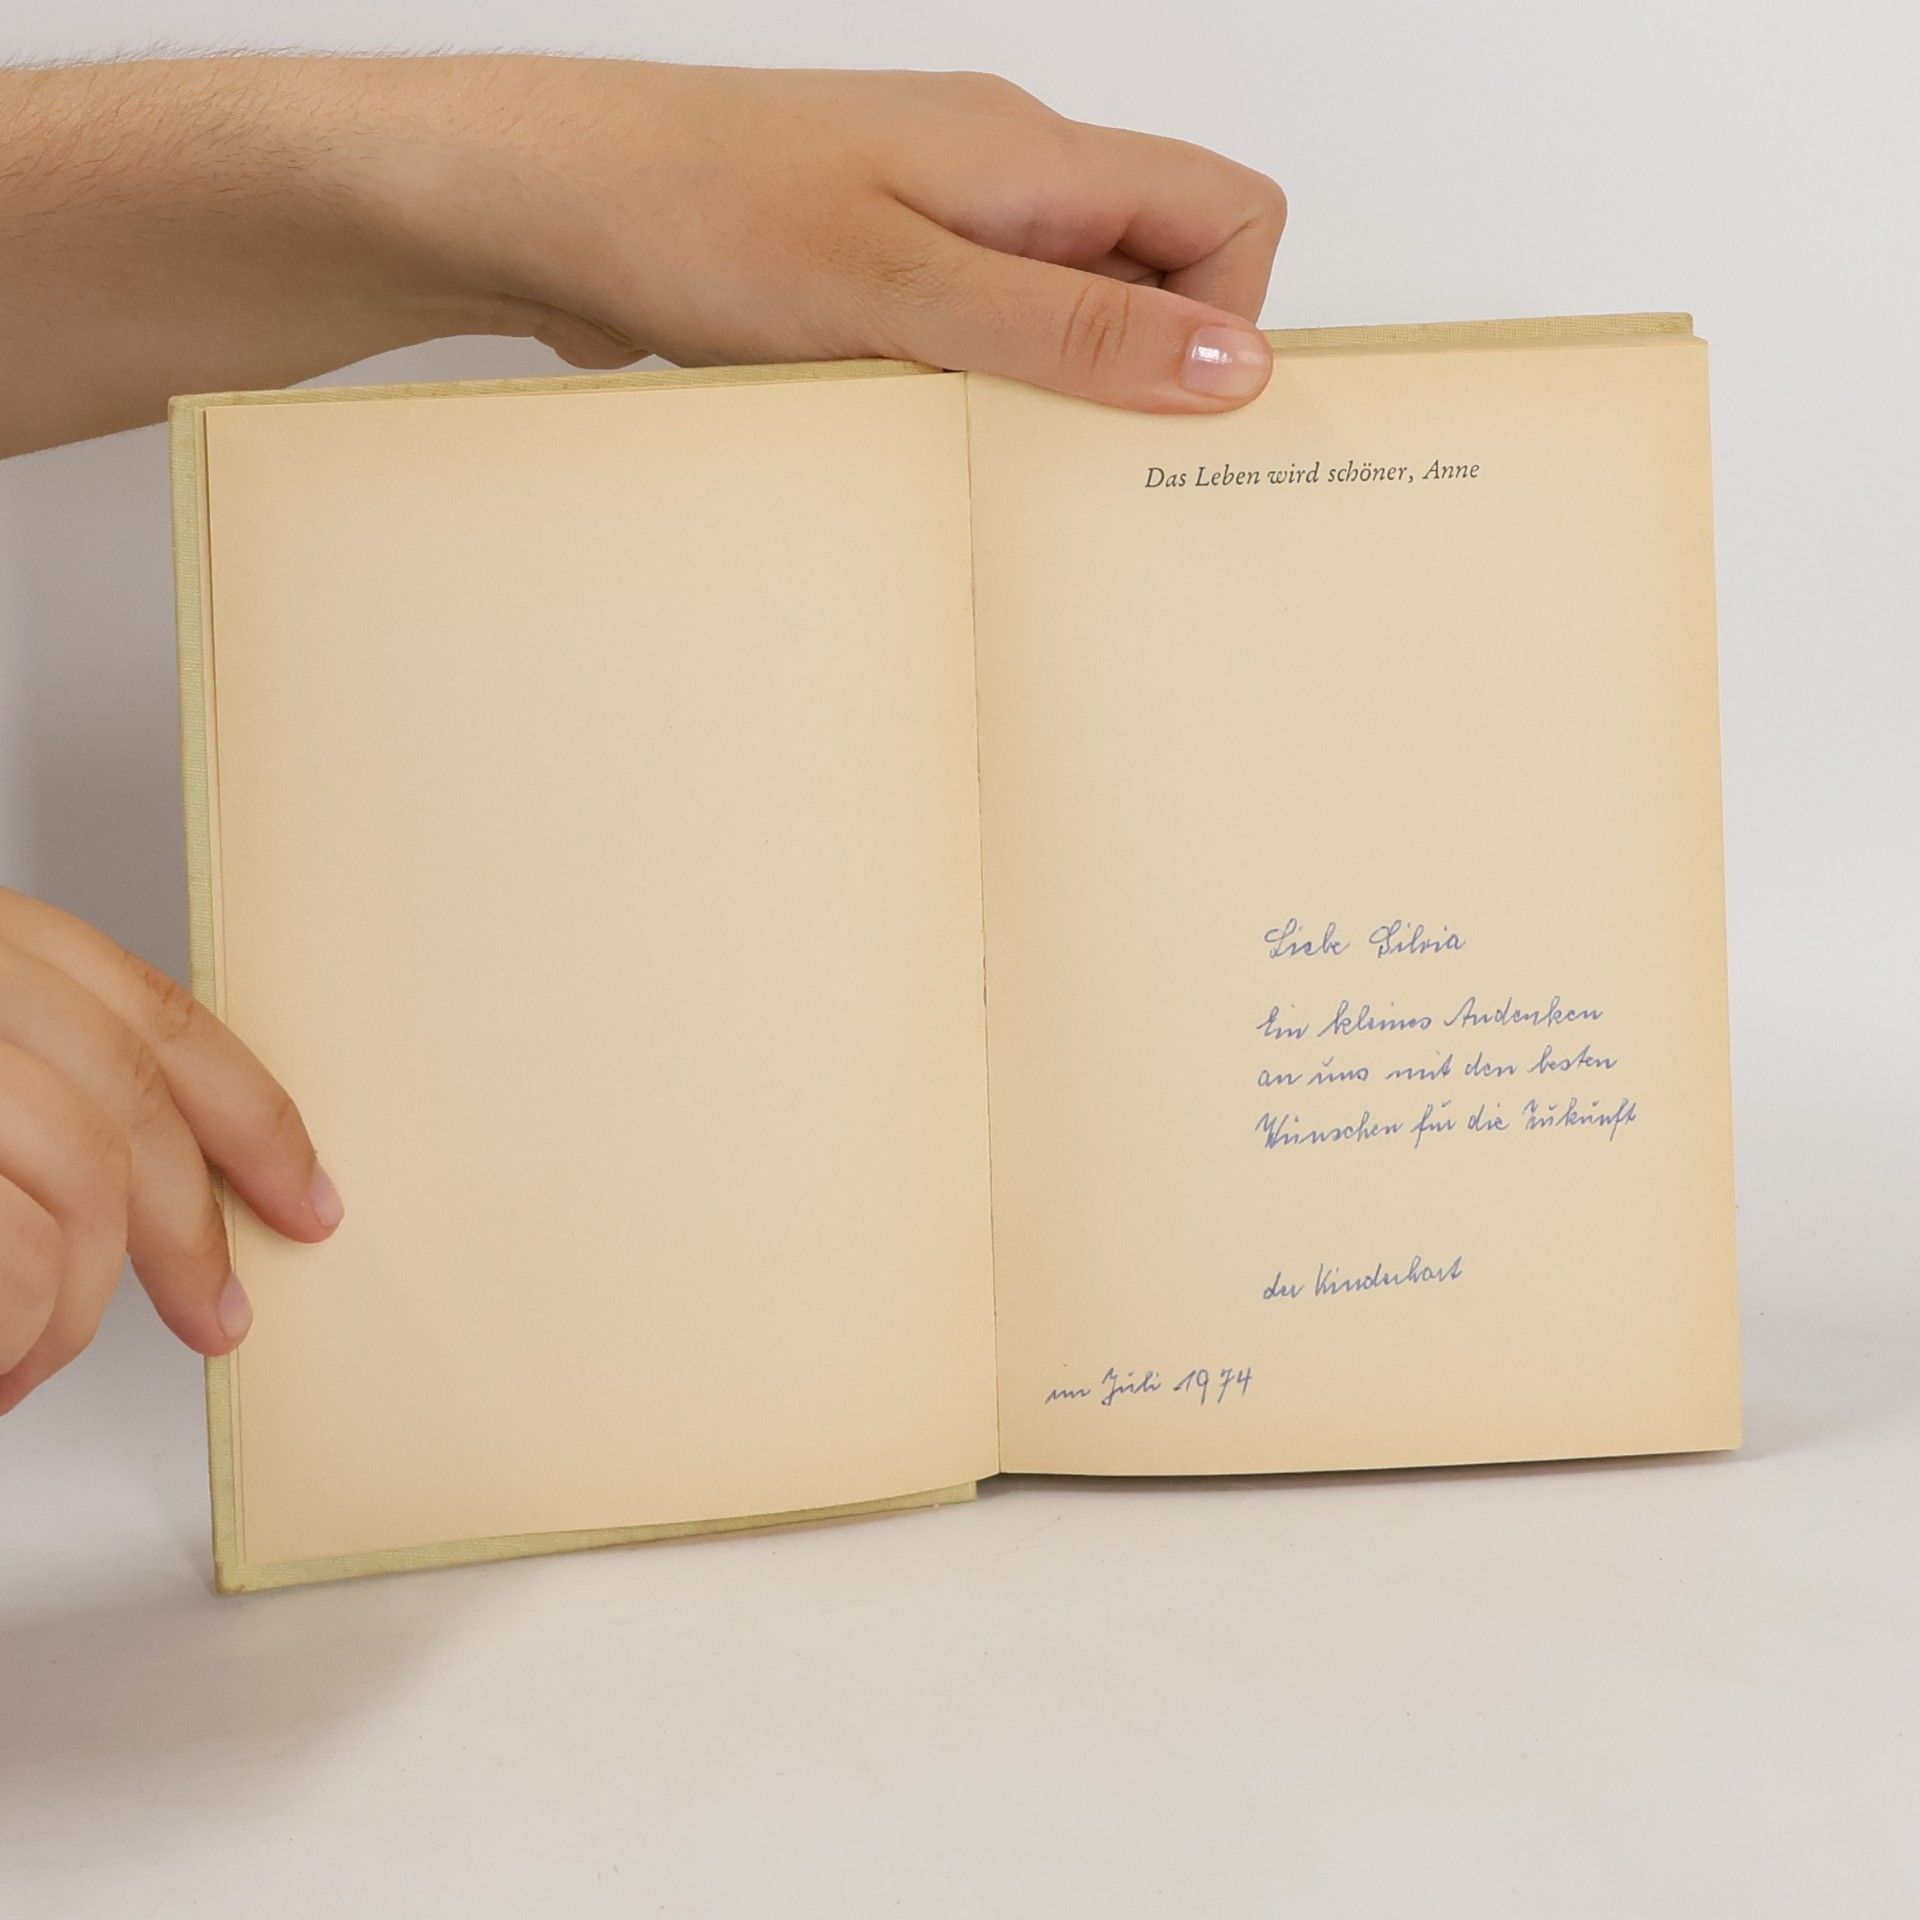 Das Leben wird schöner, Anne
Liebe Silvia
Ein kleines Andenken
an uns mit den besten
Wünschen für die Zukunft
der Kinderhort
im Juli 1974